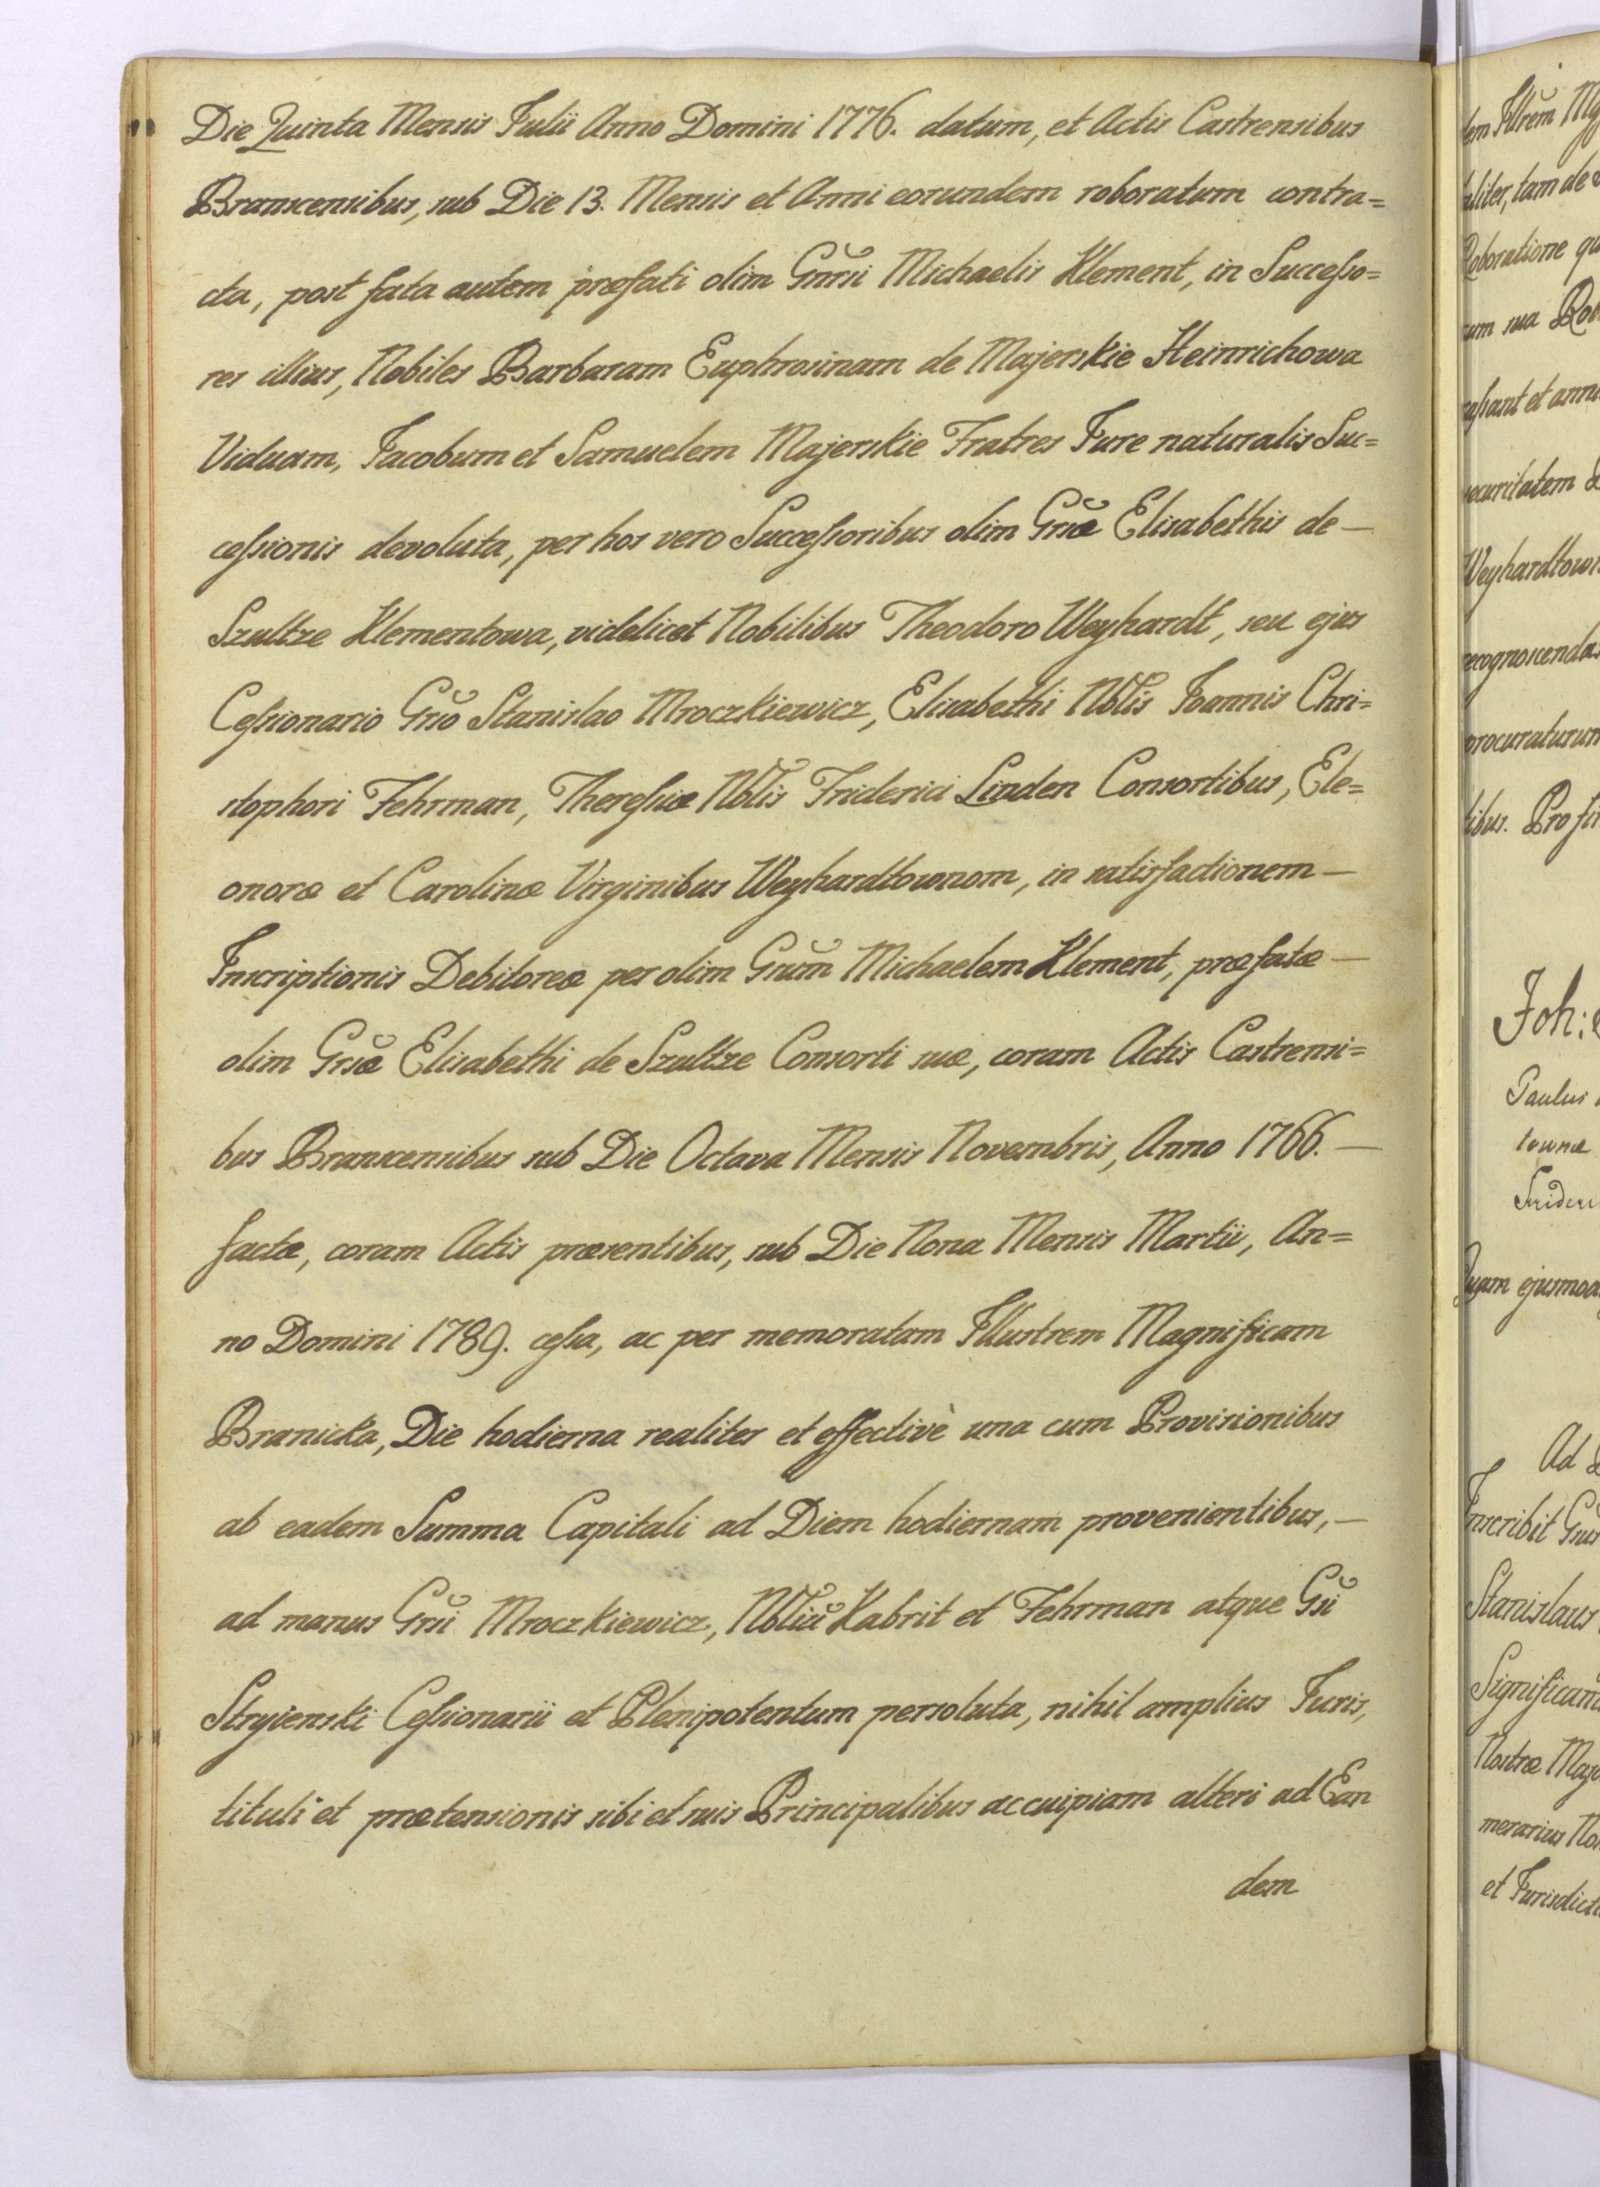 Die Quinta Mensis Julii Anno Domini 1776. datum, et Actis Castrensibus
Branscensibus, sub Die 13. Mensis et Anni eorundem roboratum contra=
cta, post fata autem præfati olim Gnrsi Michaelis Klement, in Successo=
res illius, Nobiles Barbaram Euphrosinam de Majerskie Heinrichowa
Viduam, Jacobum et Samuelem Majerskie Fratres Jure naturalis Suc=
cessionis devoluta, per hos vero Successoribus olim Grsæ Elisabethis de —
Szultze Klementowa, videlicet Nobilibus Theodoro Weyhardt, seu ejus
Cessionario Grso Stanislao Mroczkiewicz, Elisabethi Nbtis Joannis Chri=
stophori Fehrman, Theressiæ Nbtis Friderici Linden Consortibus, Ele=
onoræ et Carolinæ Virginibus Weyhardtownom, in satisfactionem —
Inscriptionis Debitoreæ per olim Grum Michaelem Klement, præfatæ —
olim Grsæ Elisabethi de Szultze Consorti suæ, coram Actis Castrensi=
bus Branscensibus sub Die Octava Mensis Novembris, Anno 1766. —
factæ, coram Actis præsentibus, sub Die Nona Mensis Martii, An=
no Domini 1789. cessa, ac per memoratam Illustrem Magnificam
Branicka, Die hodierna realiter et effectivè una cum Provisionibus
ab eadem Summa Capitali ad Diem hodiernam provenientibus, —
ad manus Grsi Mroczkiewicz, Nbtiu Kabrit et Fehrman atque Gsi
Stryienski Cessionarii et Plenipotentum persoluta, nihil amplius Juris,
tituli et prætensionis sibi et suis Principalibus ac cuipiam alteri ad Ean
dem
Joh:
Paulus
townæ
Frideri
Ad
Inscribit
Stanislaus
Nostræ
et Jurisdicti